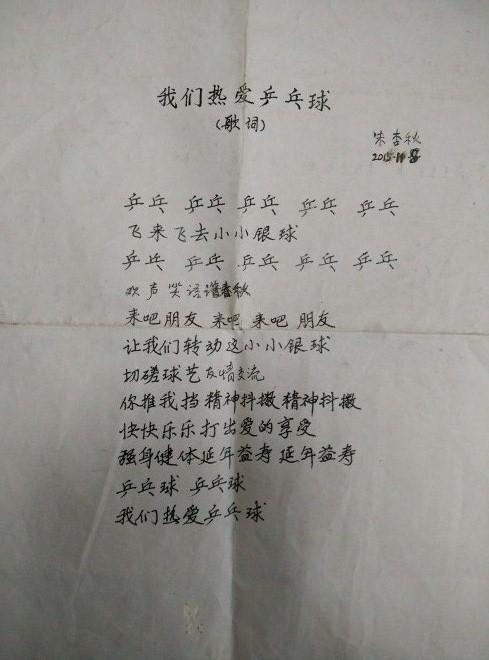 我们热爱乒乓球
(歌词)
朱杏秋
2015.11.
乒乓 乒乓 乒乓 乒乓 乒乓
飞来飞去小小银球
乒乓 乒乓 乒乓 乒乓 乒乓
欢声笑语谱春秋
来吧朋友 来吧 来吧 朋友
让我们转动这小小银球
切磋球艺友情交流
你推我挡精神抖擞精神抖擞
快快乐乐打出爱的享受
强身健体延年益寿 延年益寿
乒乓球 乒乓球
我们热爱乒乓球